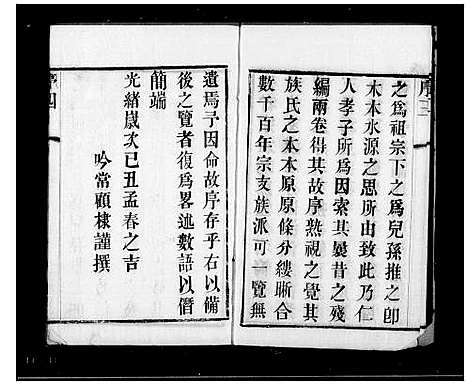 序三
之爲祖宗下之爲兒孫推之卽
木本水源之思所由致此乃仁
人孝子所爲因索其曩昔之殘
編兩卷得其故序熟視之覺其
族氏之本木原原條分縷晰合
數千百年宗支族派可一覽無
遺焉予因命故序存乎右以備
後之覽者復爲畧述數語以僭
簡端
光緒歲次已丑孟春之吉
吟常顧棣謹撰
序四